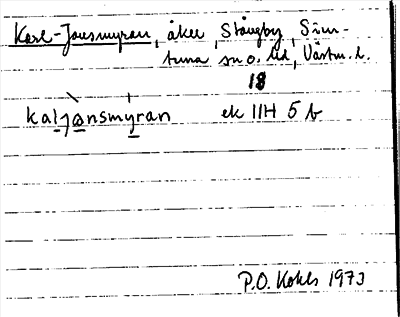 Karl-Jansmyran, åker, Stångby, Sim-
tuna sn o. hd, Västm. l.
18
kaljansmyran ek 11H 5 b
P.O. Kohls 1973